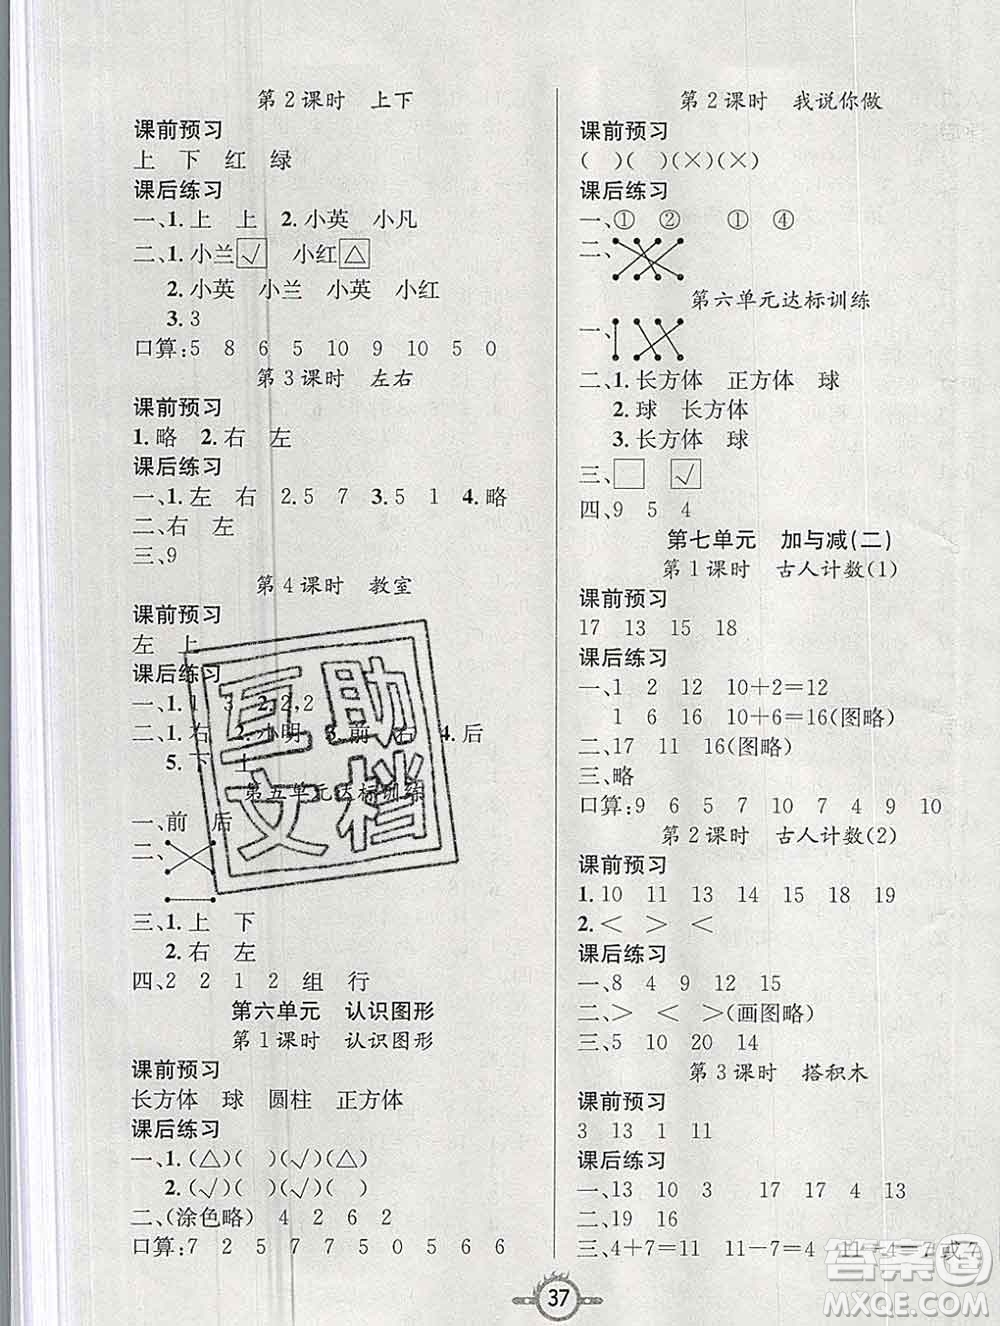 第2课时 上下
课前预习
上 下 红 绿
课后练习
一、1.上 上 2.小英 小凡
二、1.小兰√ 小红△
2.小英 小兰 小英 小红
3.3
口算:5 8 6 5 10 9 10 5 0
第3课时 左右
课前预习
1.略 2.右 左
课后练习
一、1.左 右 2.5 7 3.5 1 4.略
二、右 左
三、9
第4课时 教室
课前预习
左 上
课后练习
一、1 3 2,2,2
二、1.右 2.小明 3.前 右 4.后
5.下 上
第五单元达标训练
一、前 后
二、
三、1.上 下
2.右 左
四、2 2 1 2 组 行
第六单元 认识图形
第1课时 认识图形
课前预习
长方体 球 圆柱 正方体
课后练习
一、1.(△)( )(√)(△)
2.(√)( )(√)( )
二、(涂色略) 4 2 6 2
口算:7 2 5 7 7 5 0 5 6 6
第2课时 我说你做
课前预习
( )( )(×)(×)
课后练习
一、① ② ① ④
二、
第六单元达标训练
一、
二、1.长方体 正方体 球
2.球 长方体
3.长方体 球
三、□ √
四、9 5 4
第七单元 加与减(二)
第1课时 古人计数(1)
课前预习
17 13 15 18
课后练习
一、1 2 12 10+2=12
1 6 16 10+6=16(图略)
二、17 11 16(图略)
三、略
口算:9 6 5 7 10 7 4 9 10
第2课时 古人计数(2)
课前预习
1.10 11 13 14 15 18 19
2.< > <
课后练习
一、8 4 9 12 15
二、> > <>(画图略)
三、5 10 20 14
第3课时 搭积木
课前预习
3 13 1 11
课后练习
一、13 10 3 17 17 4 13
二、19 16
三、4+7=11 11-7=4 11-4=7或7
37
互助
文档
答案圈
MXQE.COM